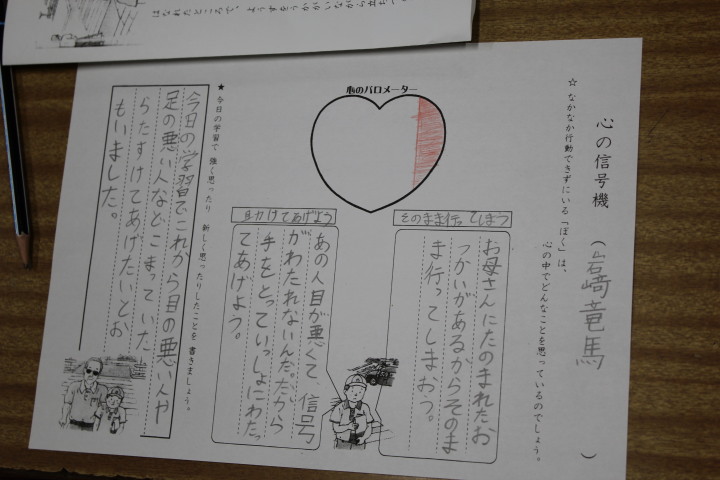 はなれたところで、ようすをうかがいながら立ち
心の信号機
（岩﨑竜馬）
☆なかなか行動できずにいる「ぼく」は、
心の中でどんなことを思っているのでしょう。
心のバロメーター
そのまま行ってしまう
お母さんにたのまれたお
つかいがあるからそのま
ま行ってしまおう。
助けてあげよう
あの人目が悪くて、信号
がわたれないんだ。だから
手をとっていっしょにわたっ
てあげよう。
★今日の学習で 強く思ったり 新しく思ったりしたことを 書きましょう。
今日の学習でこれから目の悪い人や
足の悪い人などこまっていた
らたすけてあげたいとお
もいました。